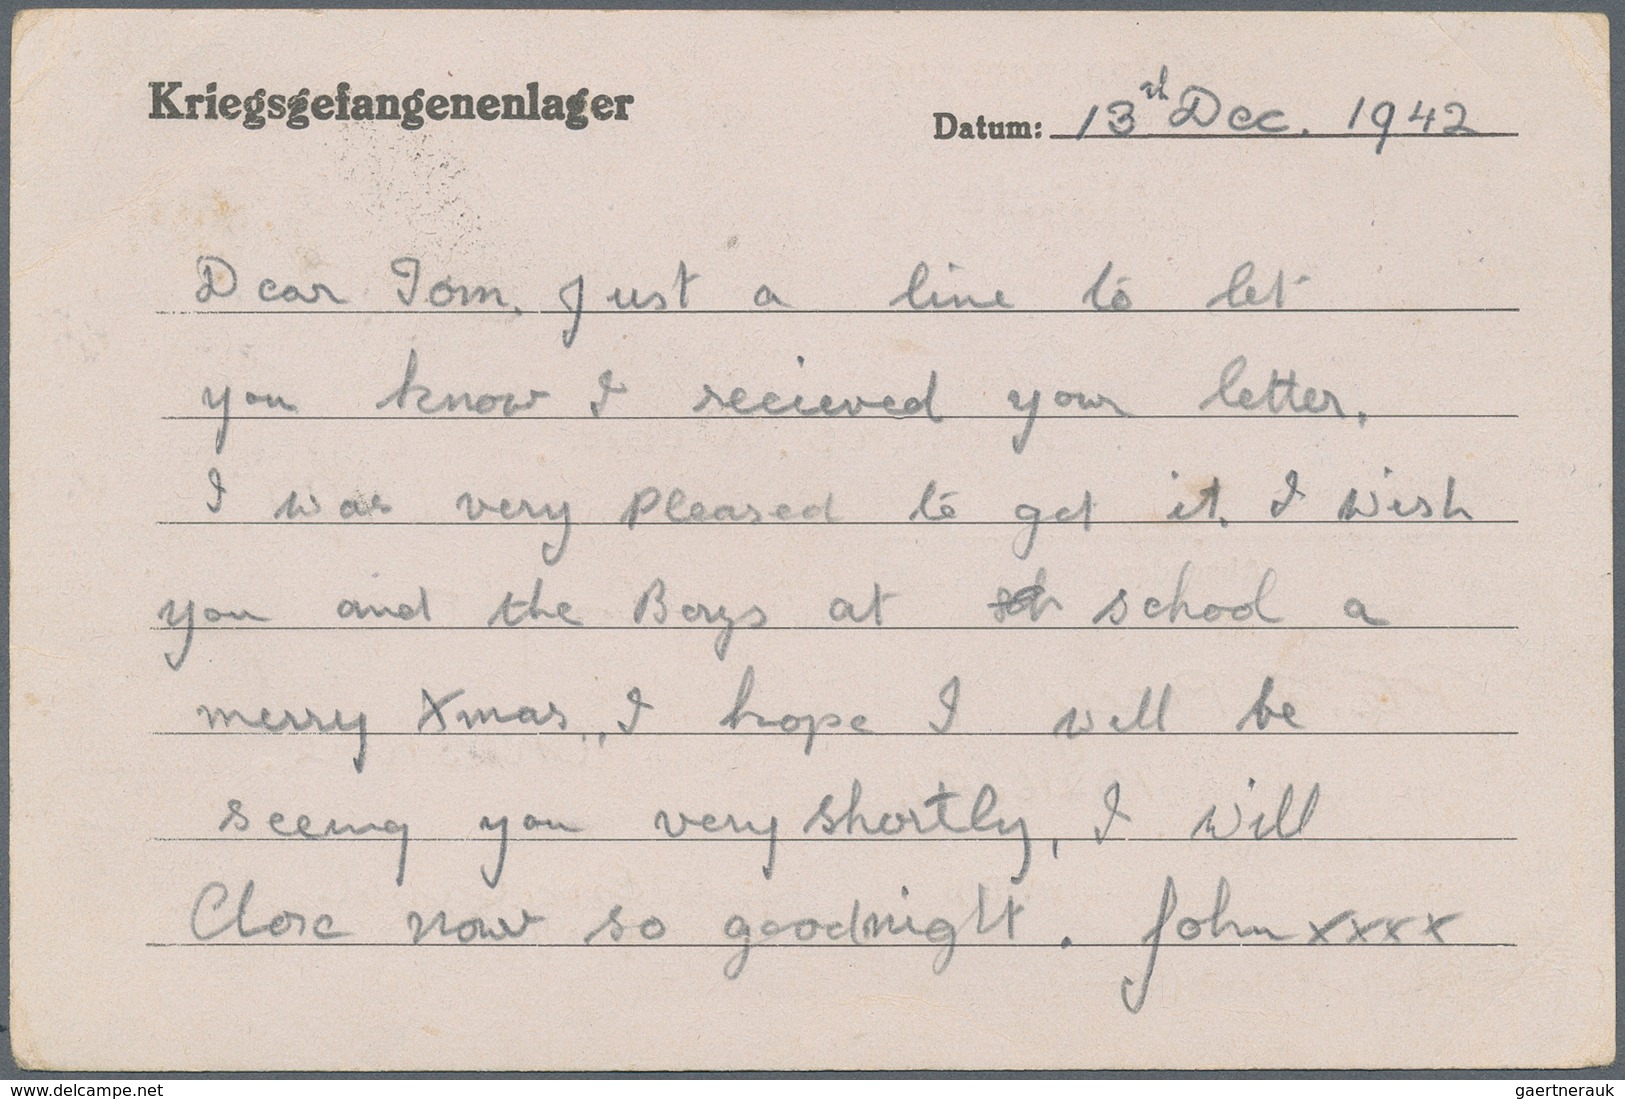 Kriegsgefangenenlager
Datum: 13th Dec. 1942
Dear Tom, Just a line to let
you know I recieved your letter,
I was very Pleased to get it. I wish
you and the Boys at school a
merry Xmas,, I hope I will be
seeing you very shortly, I will
Close now so goodnight. John xxxx
© www.delcampe.net
gaertnerauk